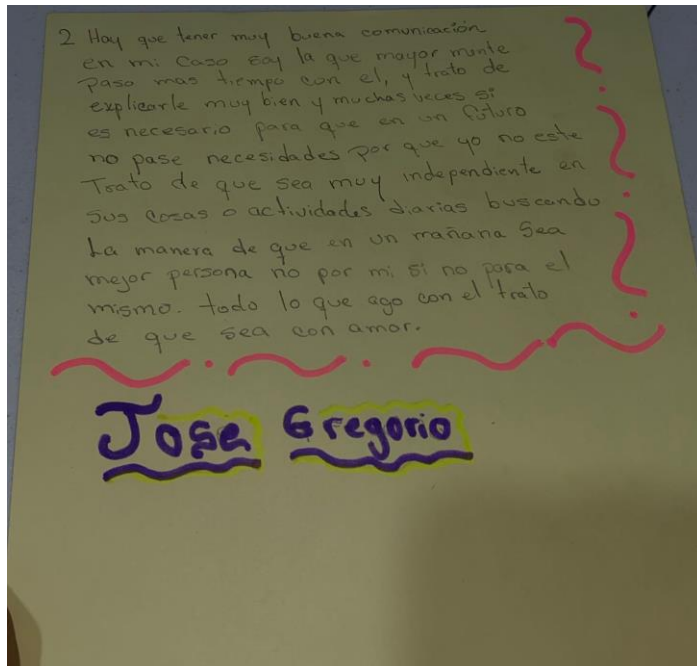 2 Hay que tener muy buena comunicación
en mi Caso soy la que mayor mente
paso mas tiempo con el, y trato de
explicarle muy bien y muchas veces si
es necesario para que en un futuro
no pase necesidades por que yo no este
Trato de que sea muy independiente en
sus cosas o actividades diarias buscando
La manera de que en un mañana sea
mejor persona no por mi si no para el
mismo. todo lo que ago con el trato
de que sea con amor.
Jose Gregorio